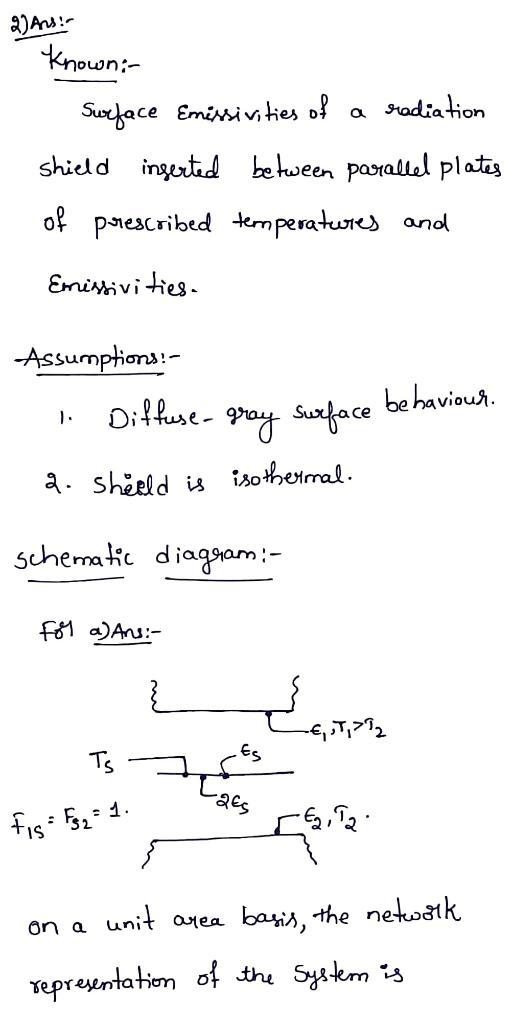 2) Ans:-
Known:-
Surface Emissivities of a radiation
shield inserted between parallel plates
of prescribed temperatures and
Emissivities.
Assumptions:-
1. Diffuse-gray surface behaviour.
2. Shield is isothermal.
schematic diagram:-
For a) Ans:-
ϵ₁, T₁>T₂
Tₛ ϵₛ
2ϵₛ
F₁ₛ = Fₛ₂ = 1. ϵ₂, T₂.
on a unit area basis, the network
representation of the System is